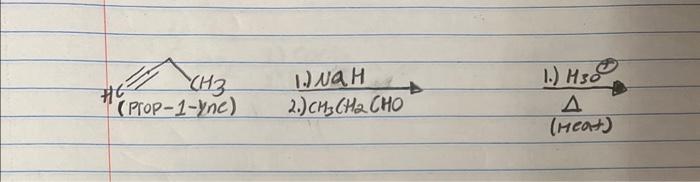 HC CH3
(Prop-1-yne)
1.) NaH
2.) CH3CH2CHO
1.) H3O⊕
Δ
(Heat)